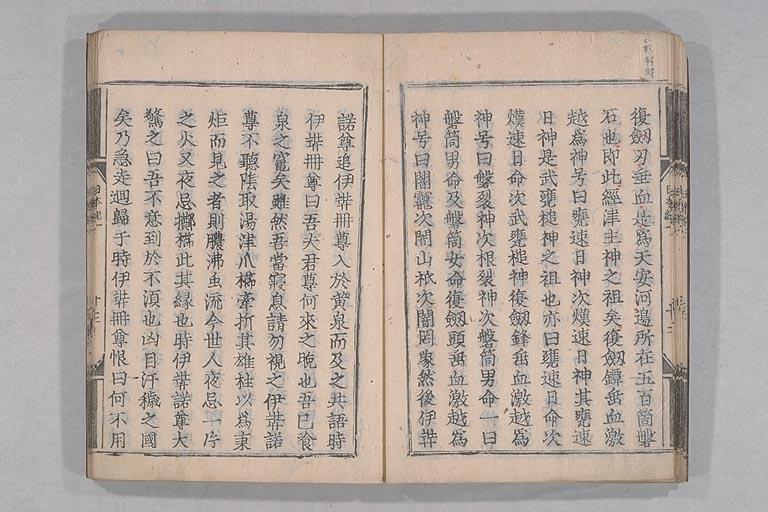 復劔刃垂血是爲天安河邊所在五百箇磐
石也即此經津主神之祖矣復劔鐔垂血激
越爲神号曰甕速日神次熯速日神其甕速
日神是武甕槌神之祖也亦曰甕速日命次
熯速日命次武甕槌神復劔鋒垂血激越爲
神号曰磐裂神次根裂神次磐筒男命一曰
磐筒男命及磐筒女命復劔頭垂血激越爲
神号曰闇龗次闇山祇次闇罔象然後伊弉
諾尊追伊弉冊尊入於黄泉而及之共語時
伊弉冊尊曰吾夫君尊何來之晩也吾已飡
泉之竃矣雖然吾當寢息請勿視之伊弉諾
尊不聽陰取湯津爪櫛牽折其雄柱以爲秉
炬而見之者則膿沸虫流今世人夜忌一片
之火又夜忌擲櫛此其縁也時伊弉諾尊大
驚之曰吾不意到於不湏也凶目汙穢之國
矣乃急走廻歸于時伊弉冊尊恨曰何不用
日本紀一
十三